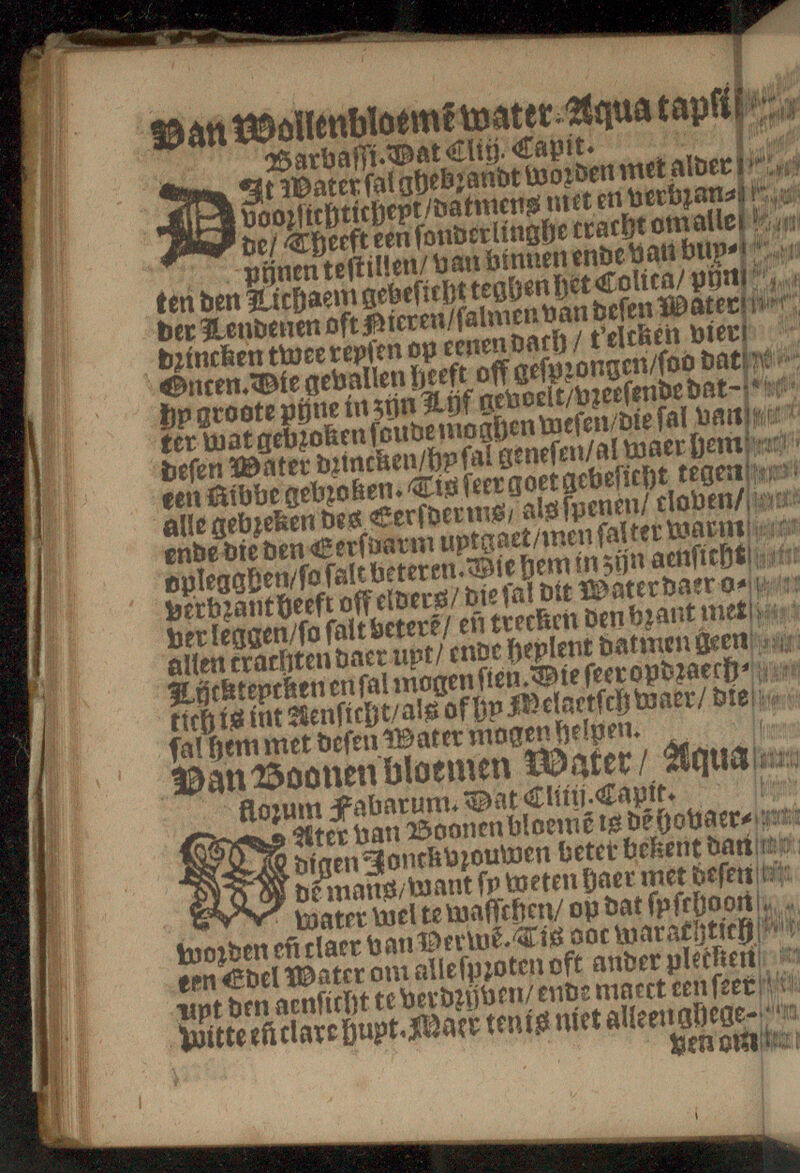 Van Wollenbloemē water. Aqua tapsi
Barbassi. Dat Cliij. Capit.
DIt Water sal ghebrandt worden met alder
voorsichticheyt / datmens niet en verbran⸗
de / Theeft een sonderlinghe cracht om alle
pijnen te stillen / van binnen ende van buy⸗
ten den Lichaem gebesicht teghen het Colica / pijn
der Lendenen oft Nieren / salmen van desen Water
drincken twee reysen op eenen dach / t'elcken vier
Oncen. Die gevallen heeft off gesprongen / soo dat
hy groote pijne in zijn Lijf gevoelt / vreesende dat-
ter wat gebroken soude moghen wesen / die sal van
desen Water drincken / hy sal genesen / al waer hem
een Ribbe gebroken. Tis seer goet gebesicht tegen
alle gebreken des Eersderms / als spenen / cloven /
ende die den Eersdarm uytgaet / men salter warm
oplegghen / so salt beteren. Die hem in zijn aensicht
verbrant heeft off elders / die sal dit Water daer o⸗
ver leggen / so salt beterē / eñ trecken den brant met
allen crachten daer uyt / ende heylent datmen geen
Lijckteycken en sal mogen sien. Die seer opdraech⸗
tich is int Aensicht / als of hy Melaetsch waer / die
sal hem met desen Water mogen helpen.
Van Boonen bloemen Water / Aqua
florum Fabarum. Dat Cliiij. Capit.
WAter van Boonen bloemē is dē hovaer⸗
digen Jonckvrouwen beter bekent dan
dē mans / want sy weten haer met desen
water wel te wasschen / op dat sy schoon
worden eñ claer van Verwē. Tis ooc warachtich
een Edel Water om alle sproten oft ander plecken
uyt den aensicht te verdrijven / ende maect een seer
witte eñ clare huyt. Maer ten is niet alleen ghege-
ven om